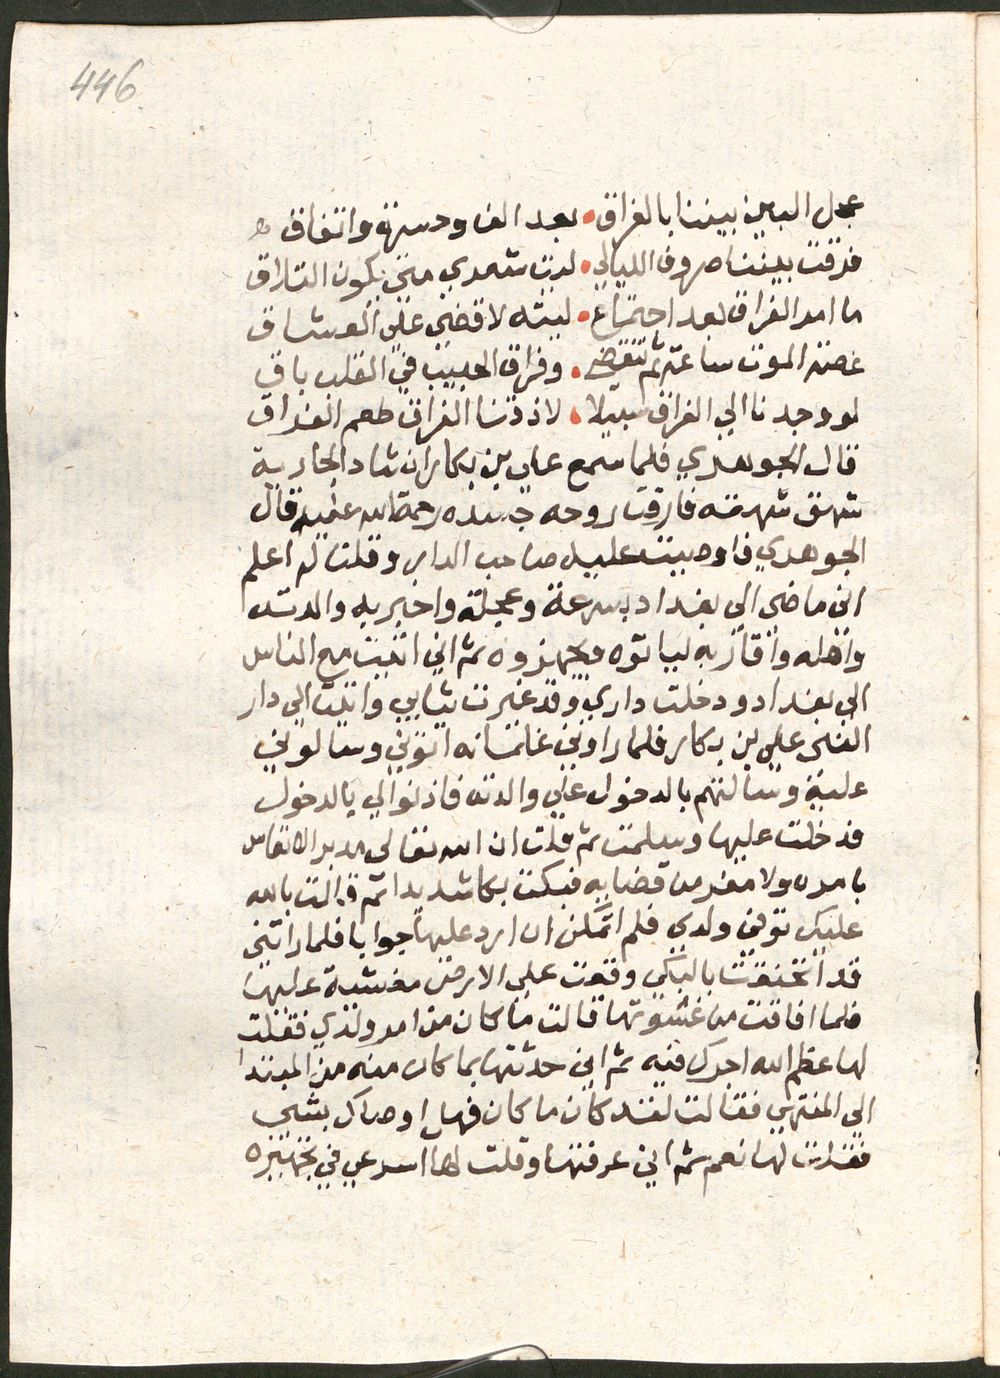 446
عجل البين بيننا بالفراق • بعد الف وحسرة واتفاق
فرقت بيننا صروف الليالي • ليت شعري متى يكون التلاق
ما امر الفراق بعد اجتماع • ليته لا قضى على العشاق
غصة الموت ساعة ثم تنقضي • وفراق الحبيب في القلب باقي
لو وجدنا الي الفراق سبيلا • لاذقنا الفراق طعم الفراق
قال الجوهري فلما سمع علي بن بكار انشاد الجارية
شهق شهقة فارقت روحه جسده رحمة الله عليه قال
الجوهري فاوصيت عليه صاحب الدار وقلت له اعلم
اني ماضي الي بغداد بسرعة وعجلة واخبر به والدته
واهله واقاربه لياتوه ويجهزوه ثم اني اتيت مع الناس
الي بغداد ودخلت داري وقد غيرت ثيابي واتيت الي دار
الفتى علي بن بكار فلما راوني غلمانه اتوني وسالوني
عليه وسالتهم بالدخول علي والدته فاذنوا لي بالدخول
فدخلت عليها وسلمت ثم قلت ان الله تعالي مدبر الانفاس
بامره ولا مفر من قضايه فبكت بكا شديدا ثم قالت بالله
عليك توفي ولدي فلم اتمكن ان ارد عليها جوابا فلما راتني
قد اختنقت بالبكي وقعت علي الارض مغشية عليها
فلما افاقت من غشوتها قالت ما كان من امر ولدي فقلت
لها عظم الله اجرك فيه ثم اني حدثتها بما كان منه من المبتدا
الي المنتهي فقالت لقد كان ما كان فهل اوصاك بشي
فقلت لها نعم ثم اني عرفتها وقلت لها اسرعي في تجهيزه